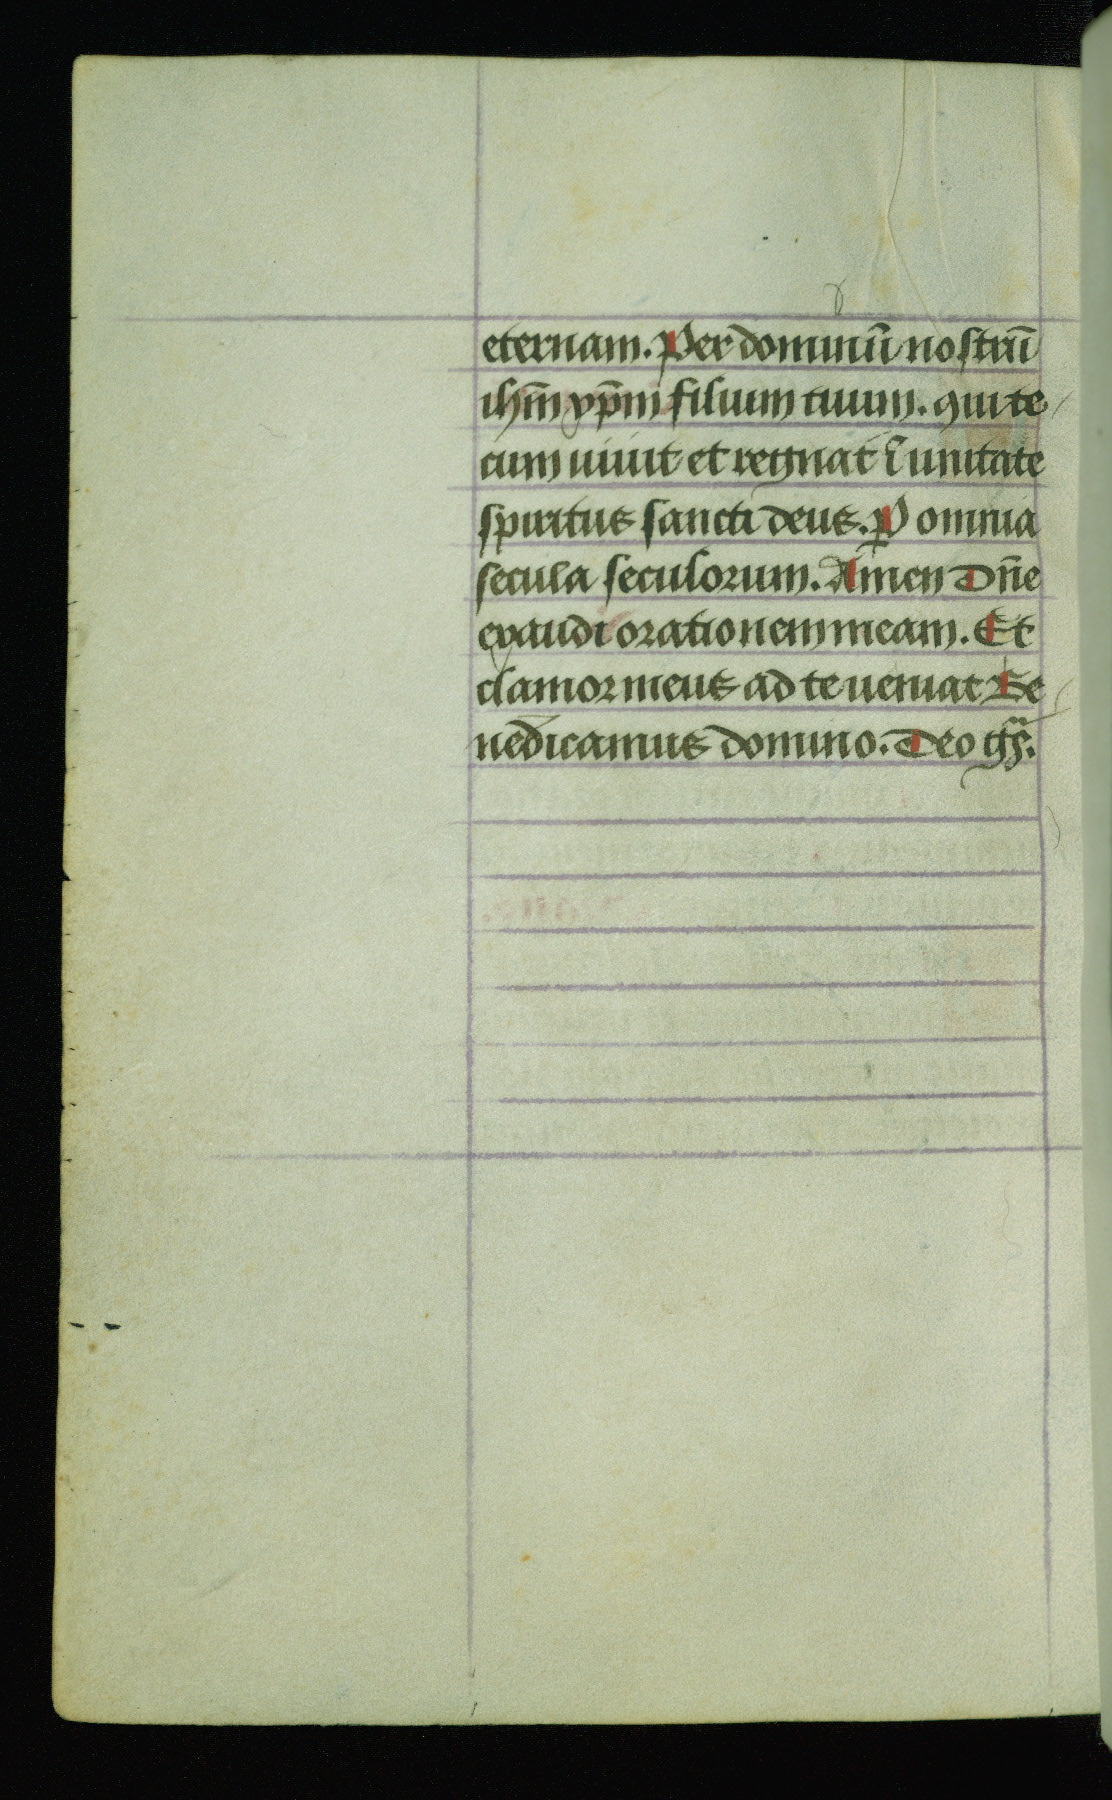 eternam. Per dominū nostrū
ihm̄ xp̄m filium tuum. qui te
cum uiuit et regnat ī unitate
spiritus sancti deus. P̱ omnia
secula seculorum. Amen Dn̄e
exaudi orationem meam. Et
clamor meus ad te ueniat Be
nedicamus domino. Deo gr̄s.